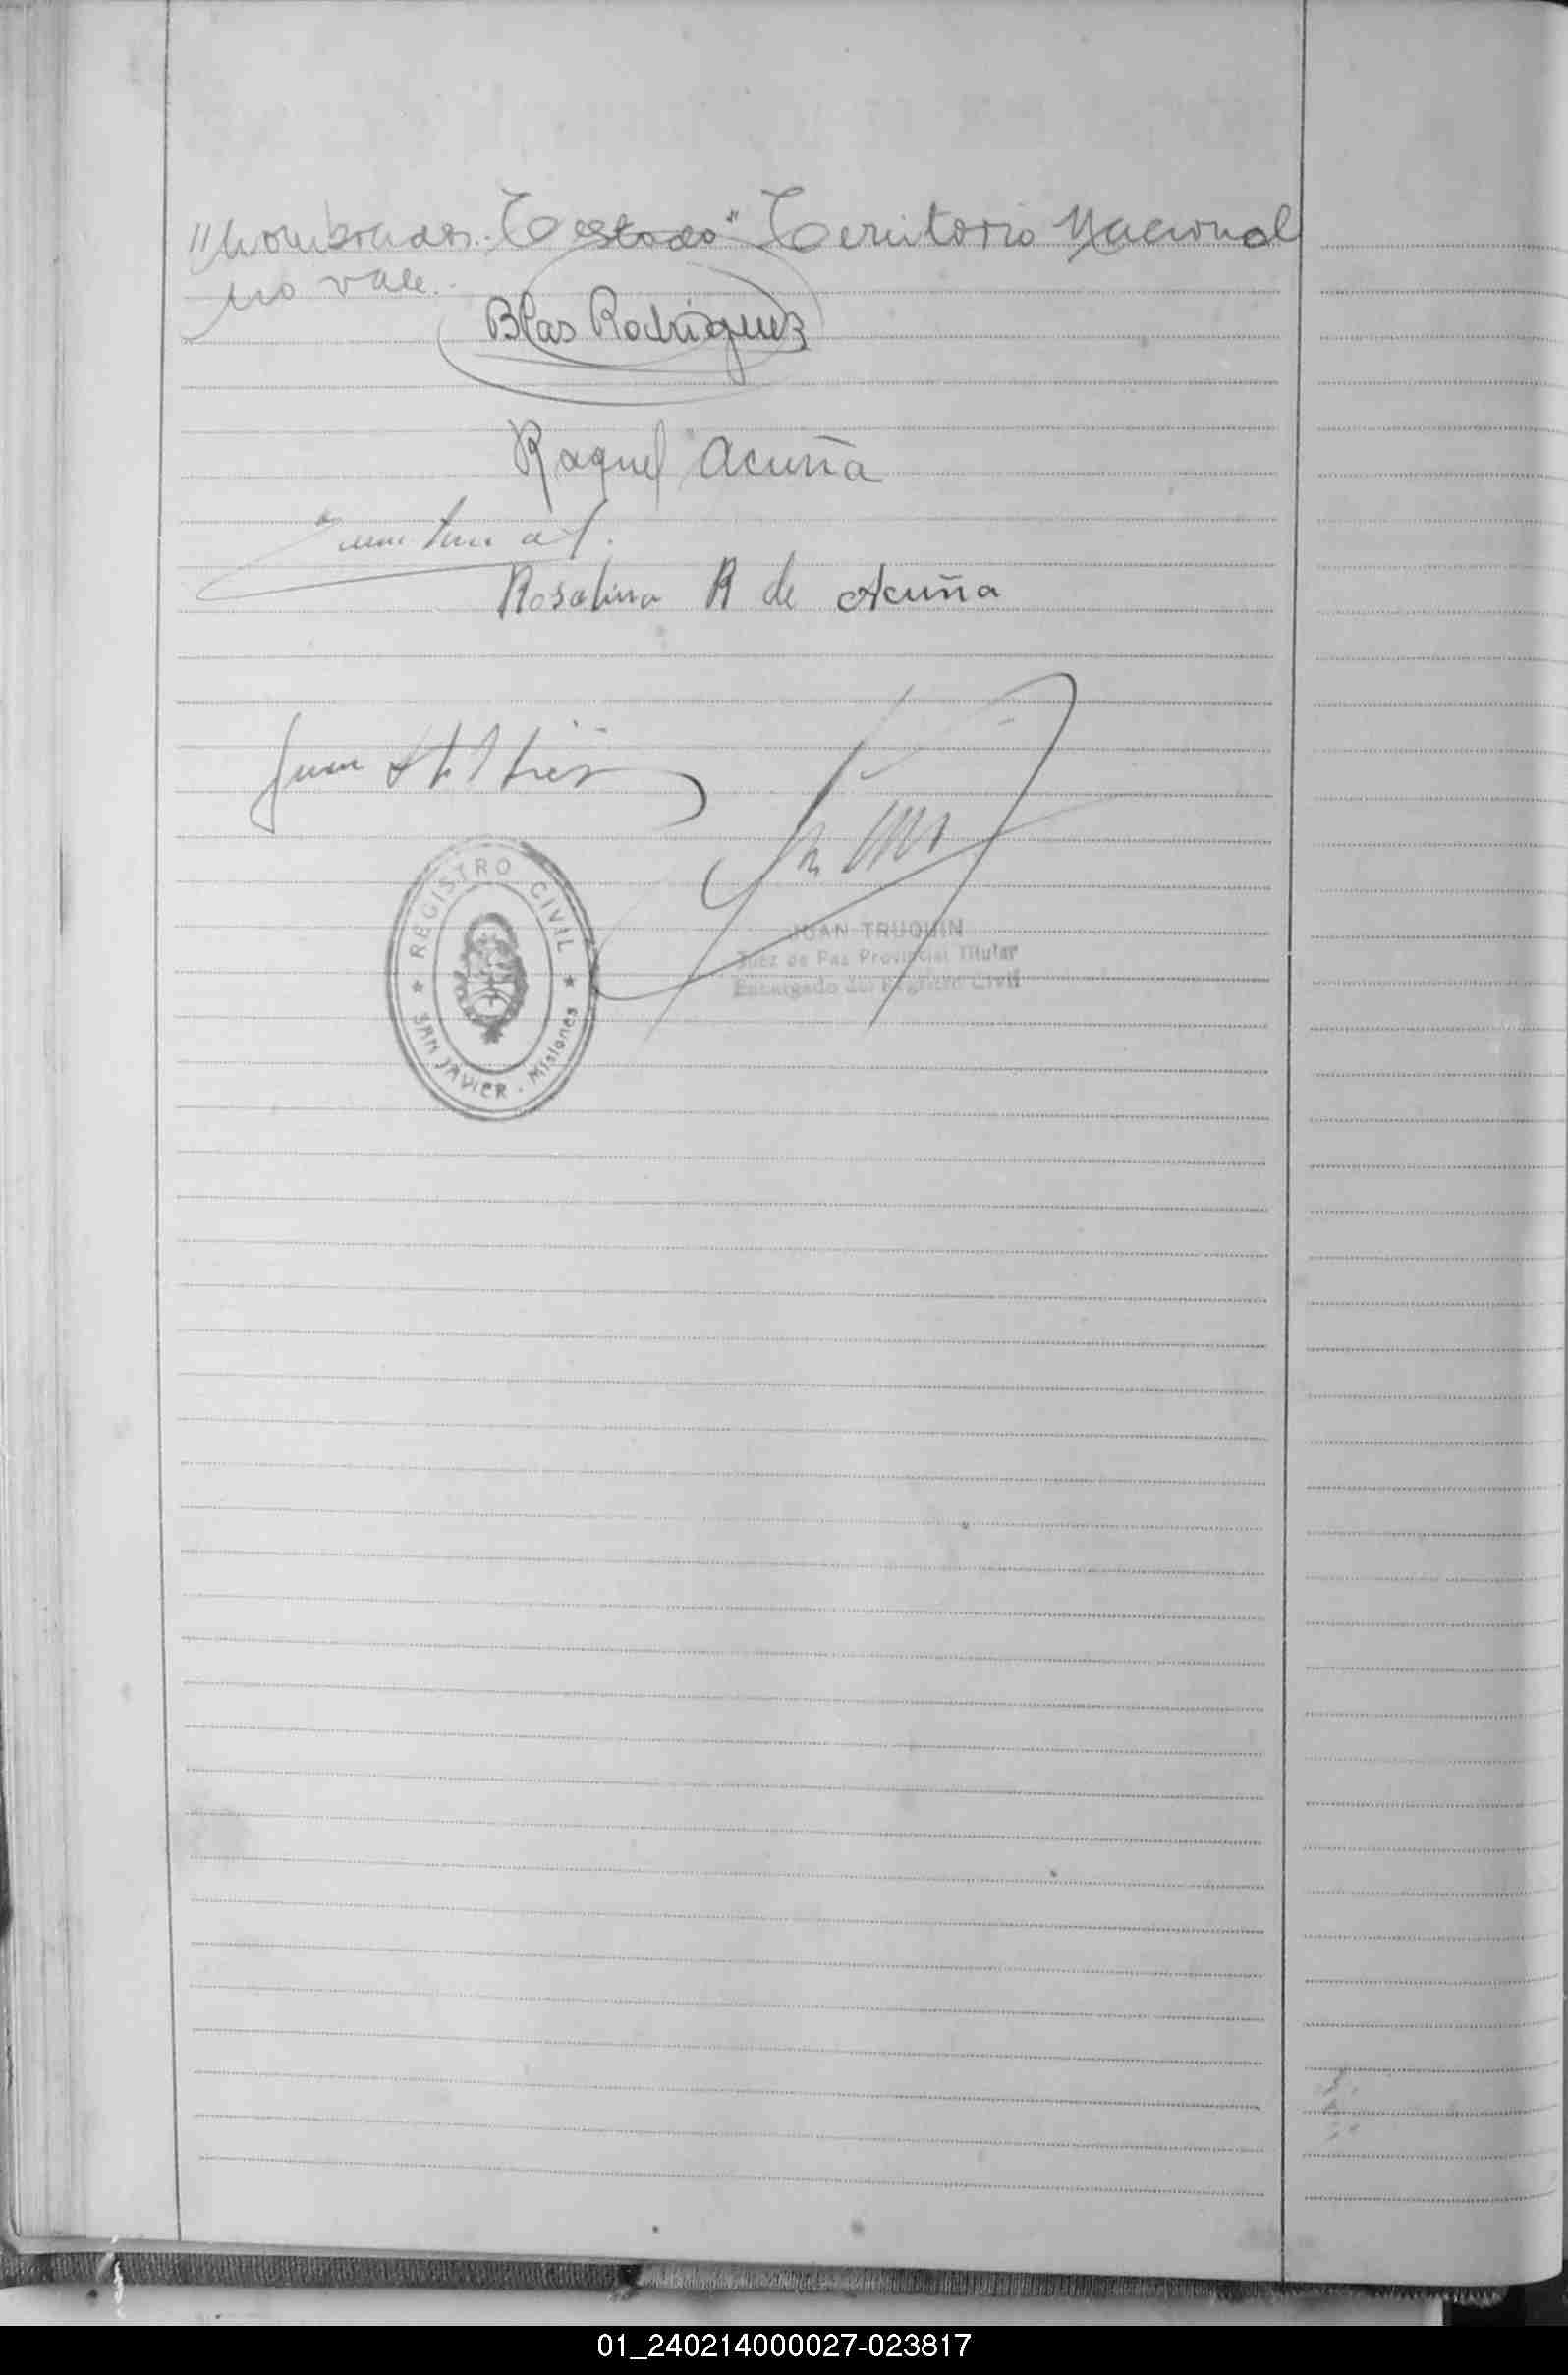 "nombrados. Testado" Territorio Nacional
no vale.
Blas Rodriguez
Raquel Acuña
Rosalina R de Acuña
Juan
REGISTRO CIVIL
SAN JAVIER - Misiones
JUAN TRUQUIN
Juez de Paz Provincial Titular
Encargado del Registro Civil
01_240214000027-023817